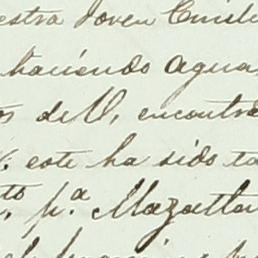 estra Joven Emil
haciendo agua
os de V, encontra
V. este ha sido ta
to, p.a Mazatla